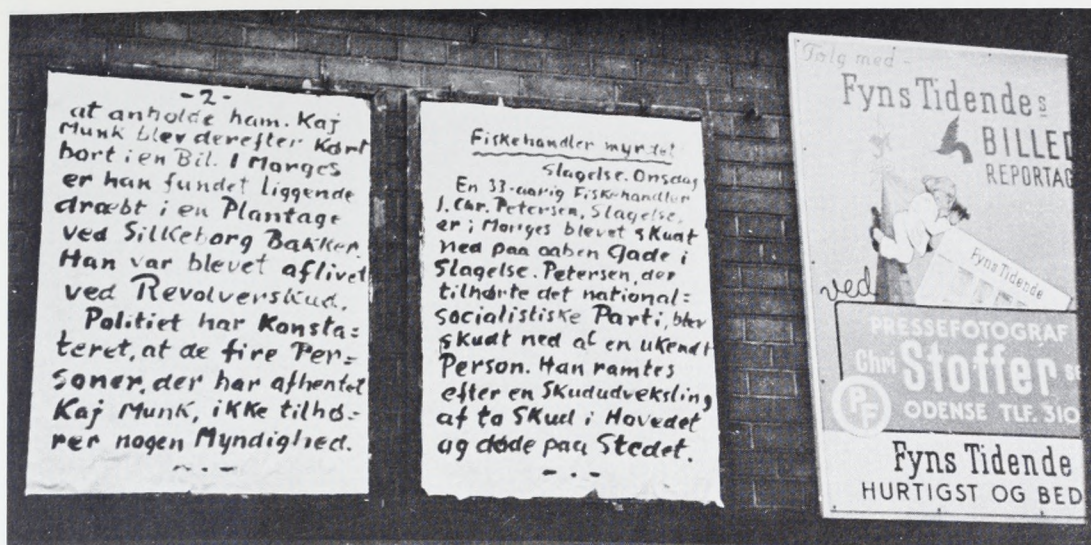 - 2 -
at anholde ham. Kaj
Munk blev derefter Kørt
bort i en Bil. I Morges
er han fundet liggende
dræbt i en Plantage
ved Silkeborg Bakker.
Han var blevet aflivet
ved Revolverskud.
Politiet har Konsta=
teret, at de fire Per=
soner, der har afhentet
Kaj Munk, ikke tilhø=
rer nogen Myndighed.
Fiskehandler myrdet
Slagelse. Onsdag
En 33-aarig Fiskehandler
J. Chr. Petersen, Slagelse,
er i Morges blevet skudt
ned paa aaben Gade i
Slagelse. Petersen, der
tilhørte det national=
socialistiske Parti, blev
skudt ned af en ukendt
Person. Han ramtes
efter en Skududveksling
af to Skud i Hovedet
og døde paa Stedet.
Følg med -
Fyns Tidendes
BILLED
REPORTAG
Fyns Tidende
ved
PRESSEFOTOGRAF
Chr. Stoffer
PF
ODENSE TLF. 310
Fyns Tidende
HURTIGST OG BED